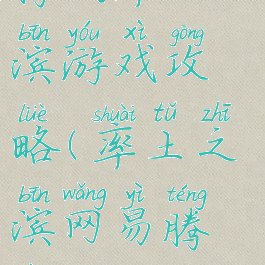 bīn yóu xì gōng
滨游戏攻
lüè shuài tǔ zhī
略(率土之
bīn wǎng yì téng
滨网易腾